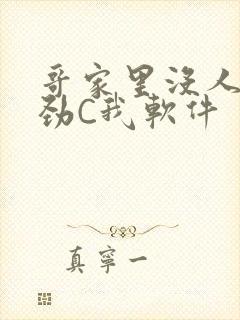 哥家里没人
劲C我软件
真宁一